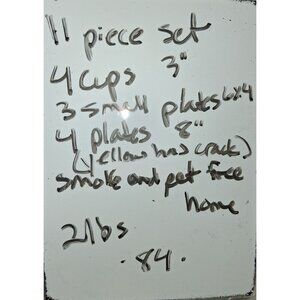 11 piece set
4 cups 3"
3 small plates 6x4
4 plates 8"
(yellow has crack)
smoke and pet free
home
2lbs
. 84 .